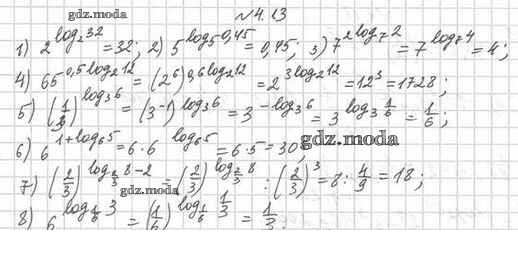 gdz.moda
№4.13
1) 2^{log_2 32} = 32; 2) 5^{log_5 0,45} = 0,45; 3) 7^{2log_7 2} = 7^{log_7 4} = 4;
4) 65^{0,5log_2 12} = (2^6)^{0,6log_2 12} = 2^{3log_2 12} = 12^3 = 1728;
5) (1/3)^{log_3 6} = (3^{-1})^{log_3 6} = 3^{-log_3 6} = 3^{log_3 1/6} = 1/6;
6) 6^{1+log_6 5} = 6·6^{log_6 5} = 6·5 = 30;
gdz.moda
7) (2/3)^{log_{2/3} 8-2} = (2/3)^{log_{2/3} 8} : (2/3)^3 = 8 : 4/9 = 18;
gdz.moda
8) 6^{log_{1/6} 3} = (1/6)^{log_{1/6} 1/3} = 1/3.